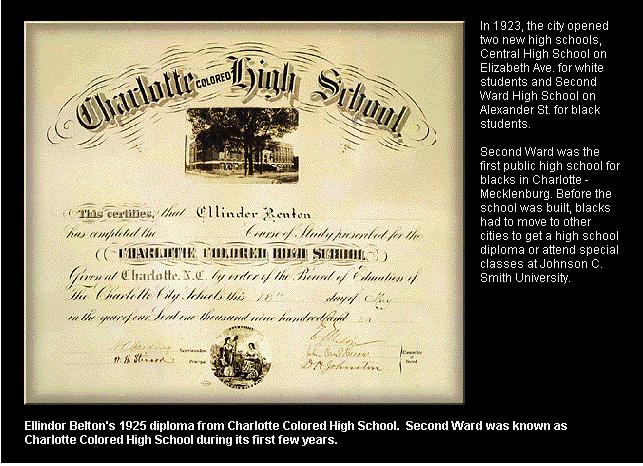 Charlotte COLORED High School.
This certifies, that Ellinder Renton
has completed the Course of Study prescribed for the
CHARLOTTE COLORED HIGH SCHOOL
Given at Charlotte, N.C. by order of the Board of Education of
The Charlotte City Schools this day of May
in the year of our Lord one thousand nine hundred and
Superintendent
Principal
D. P. Johnston
Committee
of
Board
In 1923, the city opened
two new high schools,
Central High School on
Elizabeth Ave. for white
students and Second
Ward High School on
Alexander St. for black
students.
Second Ward was the
first public high school for
blacks in Charlotte -
Mecklenburg. Before the
school was built, blacks
had to move to other
cities to get a high school
diploma or attend special
classes at Johnson C.
Smith University.
Ellindor Belton's 1925 diploma from Charlotte Colored High School. Second Ward was known as
Charlotte Colored High School during its first few years.